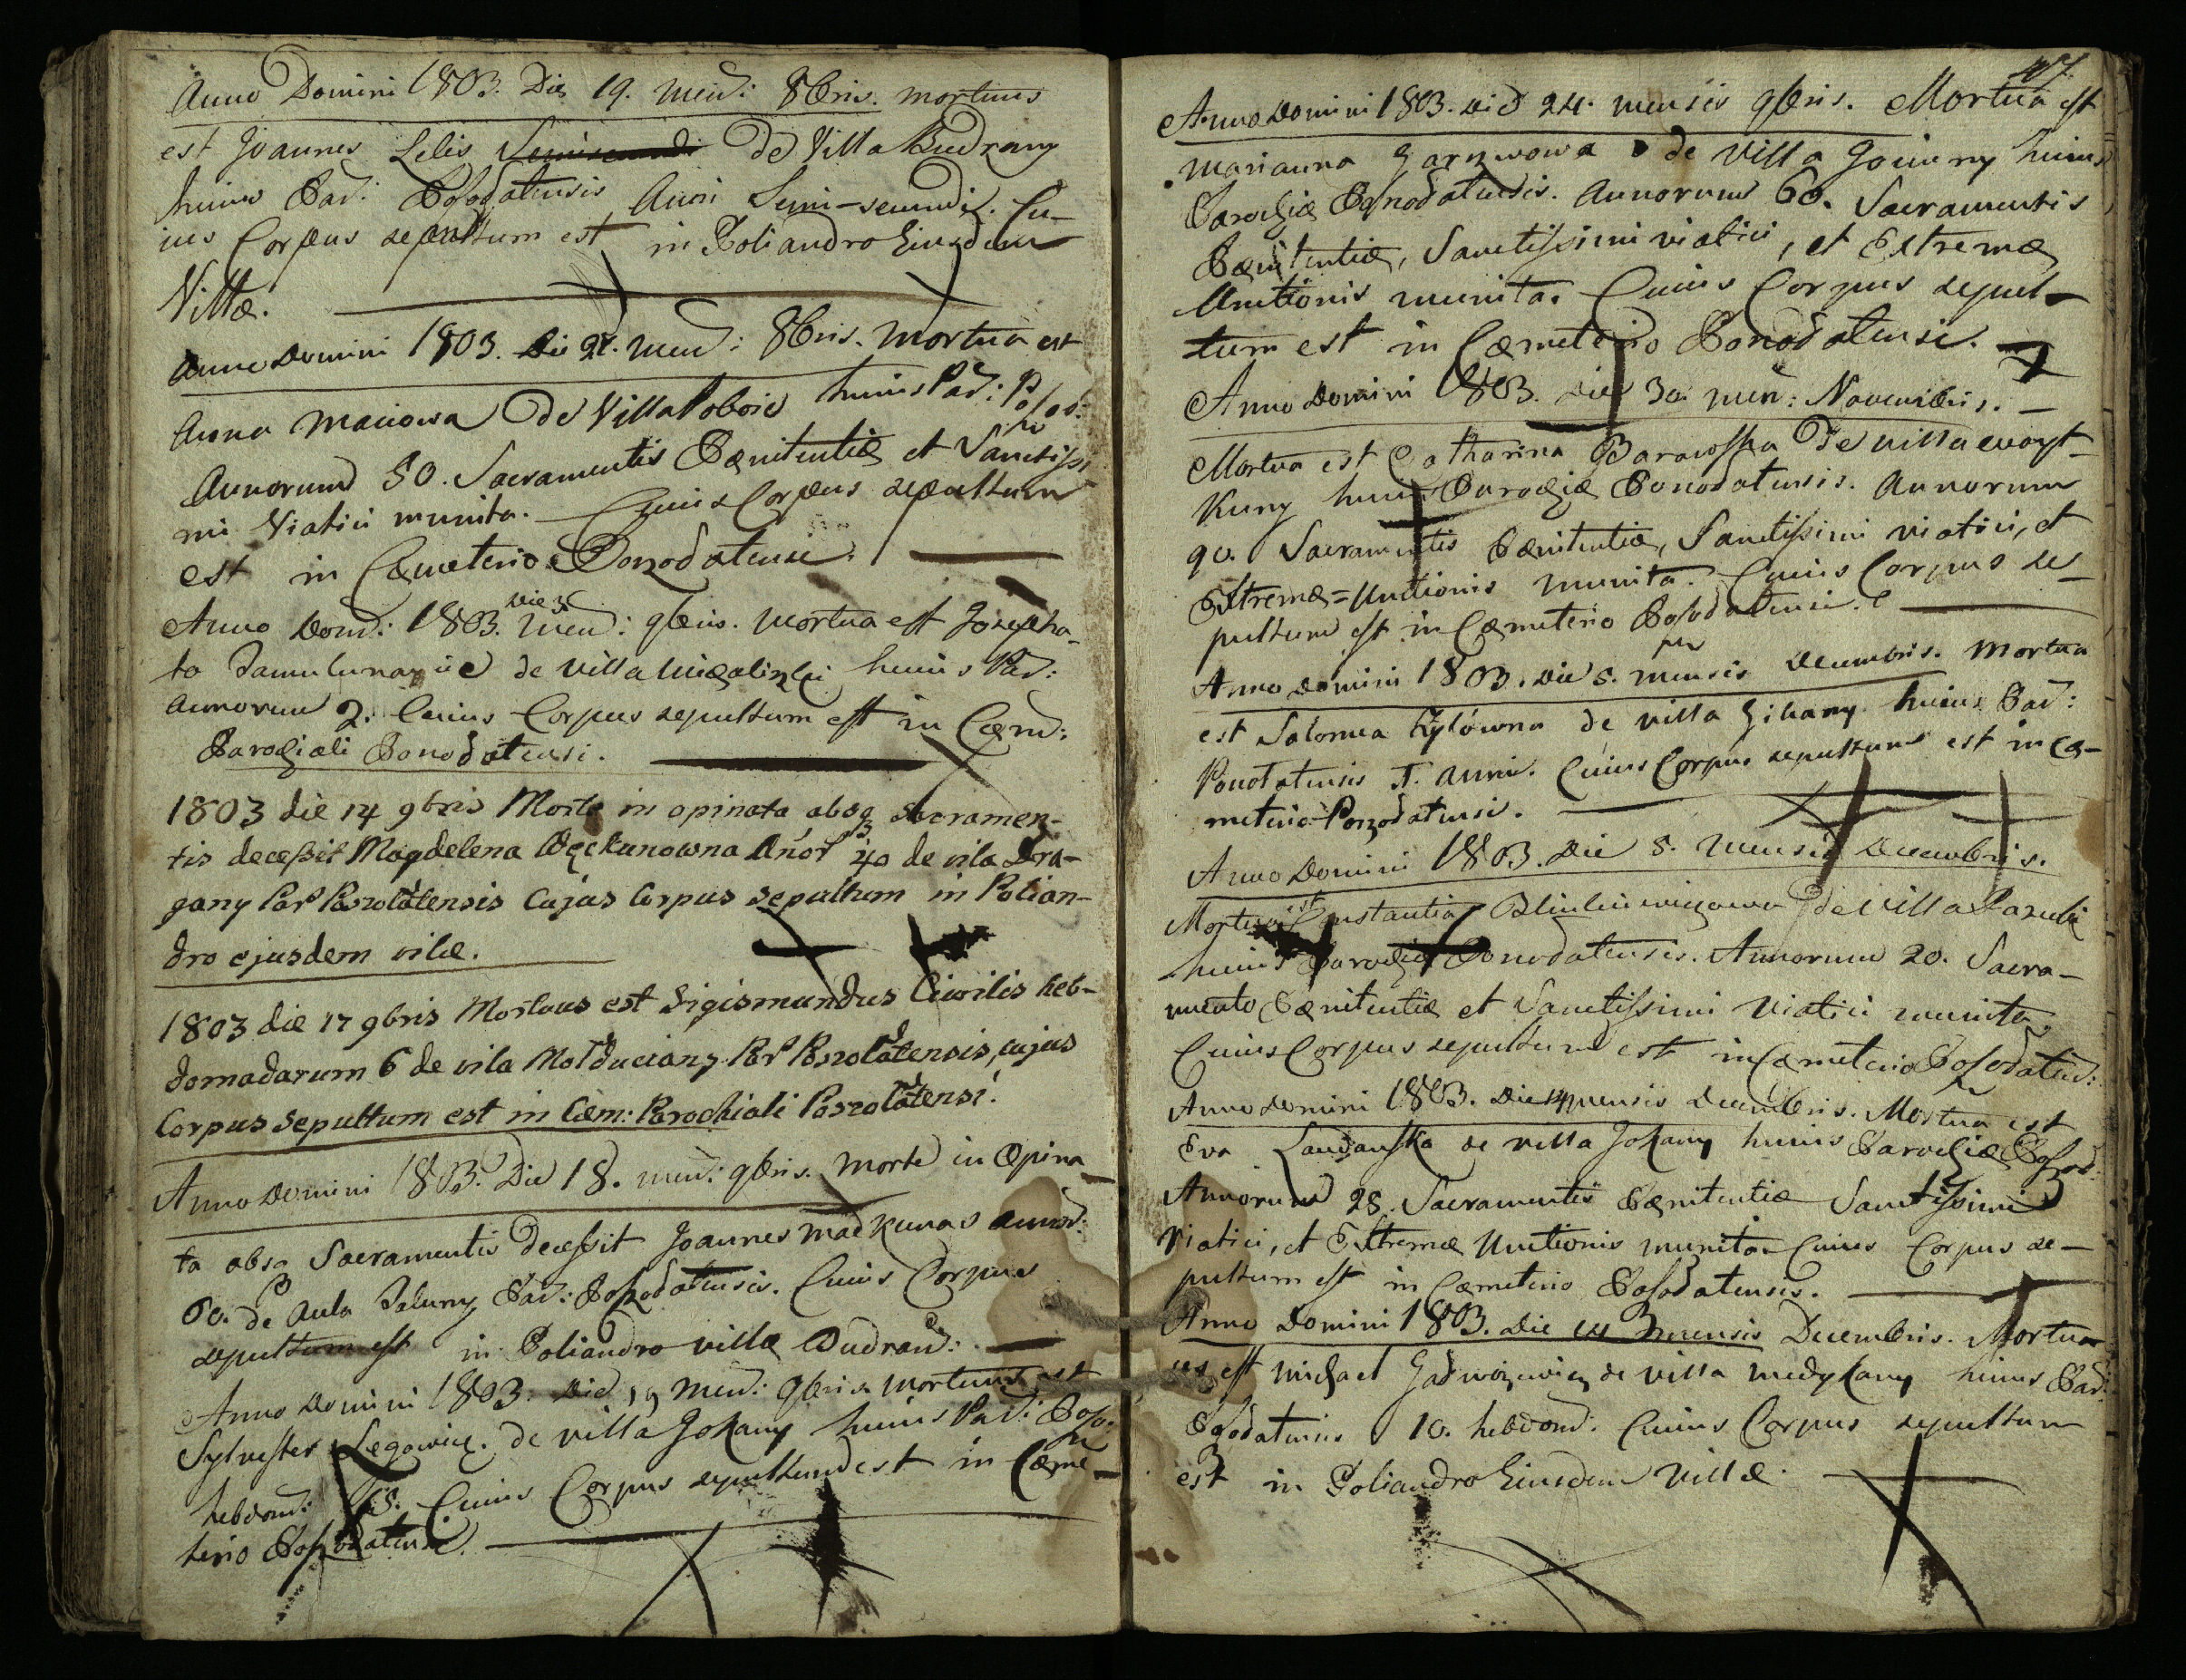 Anno Domini 1803. Die 19. men: 8bris. mortuus
est Joannes Lelis de Villa Budrany
huius Par: Anni Semi-secundi. Cu-
ius Corpus sepultum est in Poliandro Eiusdem
Villæ.
Anno Domini 1803. Die men: 8bris. mortua est
Anna Maciowa De Villa Poboie huius Par: Poszod:
Annorum 50. Sacramentis Pænitentiæ et Sanctissi-
mi Viatici munita. Cuius Corpus sepultum
est in Cæmeterio Poszodatensi.
Anno Dom: 1803. Die 3 men: 9bris. mortua est Josepha-
ta de villa huius Par:
Annorum 2. Cuius Corpus sepultum est in Cæm:
Parochiali Ponodatensi.
1803 die 14 9bris Morte in opinata absq sacramen-
tis decessit Magdelena Węckunowna Anor 40 de vila Dra-
gany Par Poszolatensis Cujus Corpus sepultum in Polian-
dro ejusdem vilæ.
1803 die 17 9bris Mortuus est Sigismundus Ciwilis heb-
domadarum 6 de vila Molduciany Par Poszolatensis, cujus
Corpus sepultum est in Cæm: Parochiali Poszolatensi.
Anno Domini 1803. Die 18. men: 9bris. Morte in Opina
ta absq Sacramentis decessit Joannes Mackunas annor:
60. de Aula Par: Poszodatensis. Cuius Corpus
sepultum est in Poliandro villæ Dudran:
Anno Domini 1803. Die 19 men: 9bris mortuus est
Sylvester Legowicz. de villa Jokany huius Par: Poszo.
hebdom: Cuius Corpus sepultum est in Cæme-
terio Poszodatensi.
47.
Anno Domini 1803. Die 24. mensis 9bris. Mortua est
Marianna de Villa huius
Parochiæ Ponodatensis. Annorum 60. Sacramentis
Pænitentiæ, Sanctissimi viatici, et Extremæ
Unctionis munita. Cuius Corpus sepul-
tum est in Cæmeterio Ponodatensi.
Anno Domini 1803. Die 30. men: Novembris. -
Mortua est Catharina Barawska De villa woyt-
kuny huius Parochiæ Ponodatensis. Annorum
90. Sacramentis Pænitentiæ, Sanctissimi viatici, et
Extremæ=Unctionis munita. Cuius Corpus se-
pultum est in Cæmeterio Poszodatensi.
Anno Domini 1803. Die 5. mensis Decembris. Mortua
est Salomea Kylówna de villa Gikany huius Par:
Ponodatensis 1. anni. Cuius Corpus sepultum est in Cæ-
meterio Poszodatensi.
Anno Domini 1803. Die 5. Mensis Decembris.
Mortua est Constantia de Villa
huius Parochiæ Ponodatensis. Annorum 20. Sacra-
mento Pænitentiæ et Sanctissimi Viatici munita
Cuius Corpus sepultum est in Cæmeterio Poszodaten:
Anno Domini 1803. Die 14 mensis Decembris. Mortua est
Eva Landańska de villa Jokany huius Parochiæ Poszod:
Annorum 28. Sacramentis Pænitentiæ Sanctissimi
Viatici, et Extremæ Unctionis munita. Cuius Corpus se-
pultum est in Cæmeterio Poszodatensis.
Anno Domini 1803. Die mensis Decembris. Mortu-
us est Michael de villa Medykany huius Par:
Poszodatensis 10. hebdom. Cuius Corpus sepultum
est in Poliandro Eiusdem Villæ.